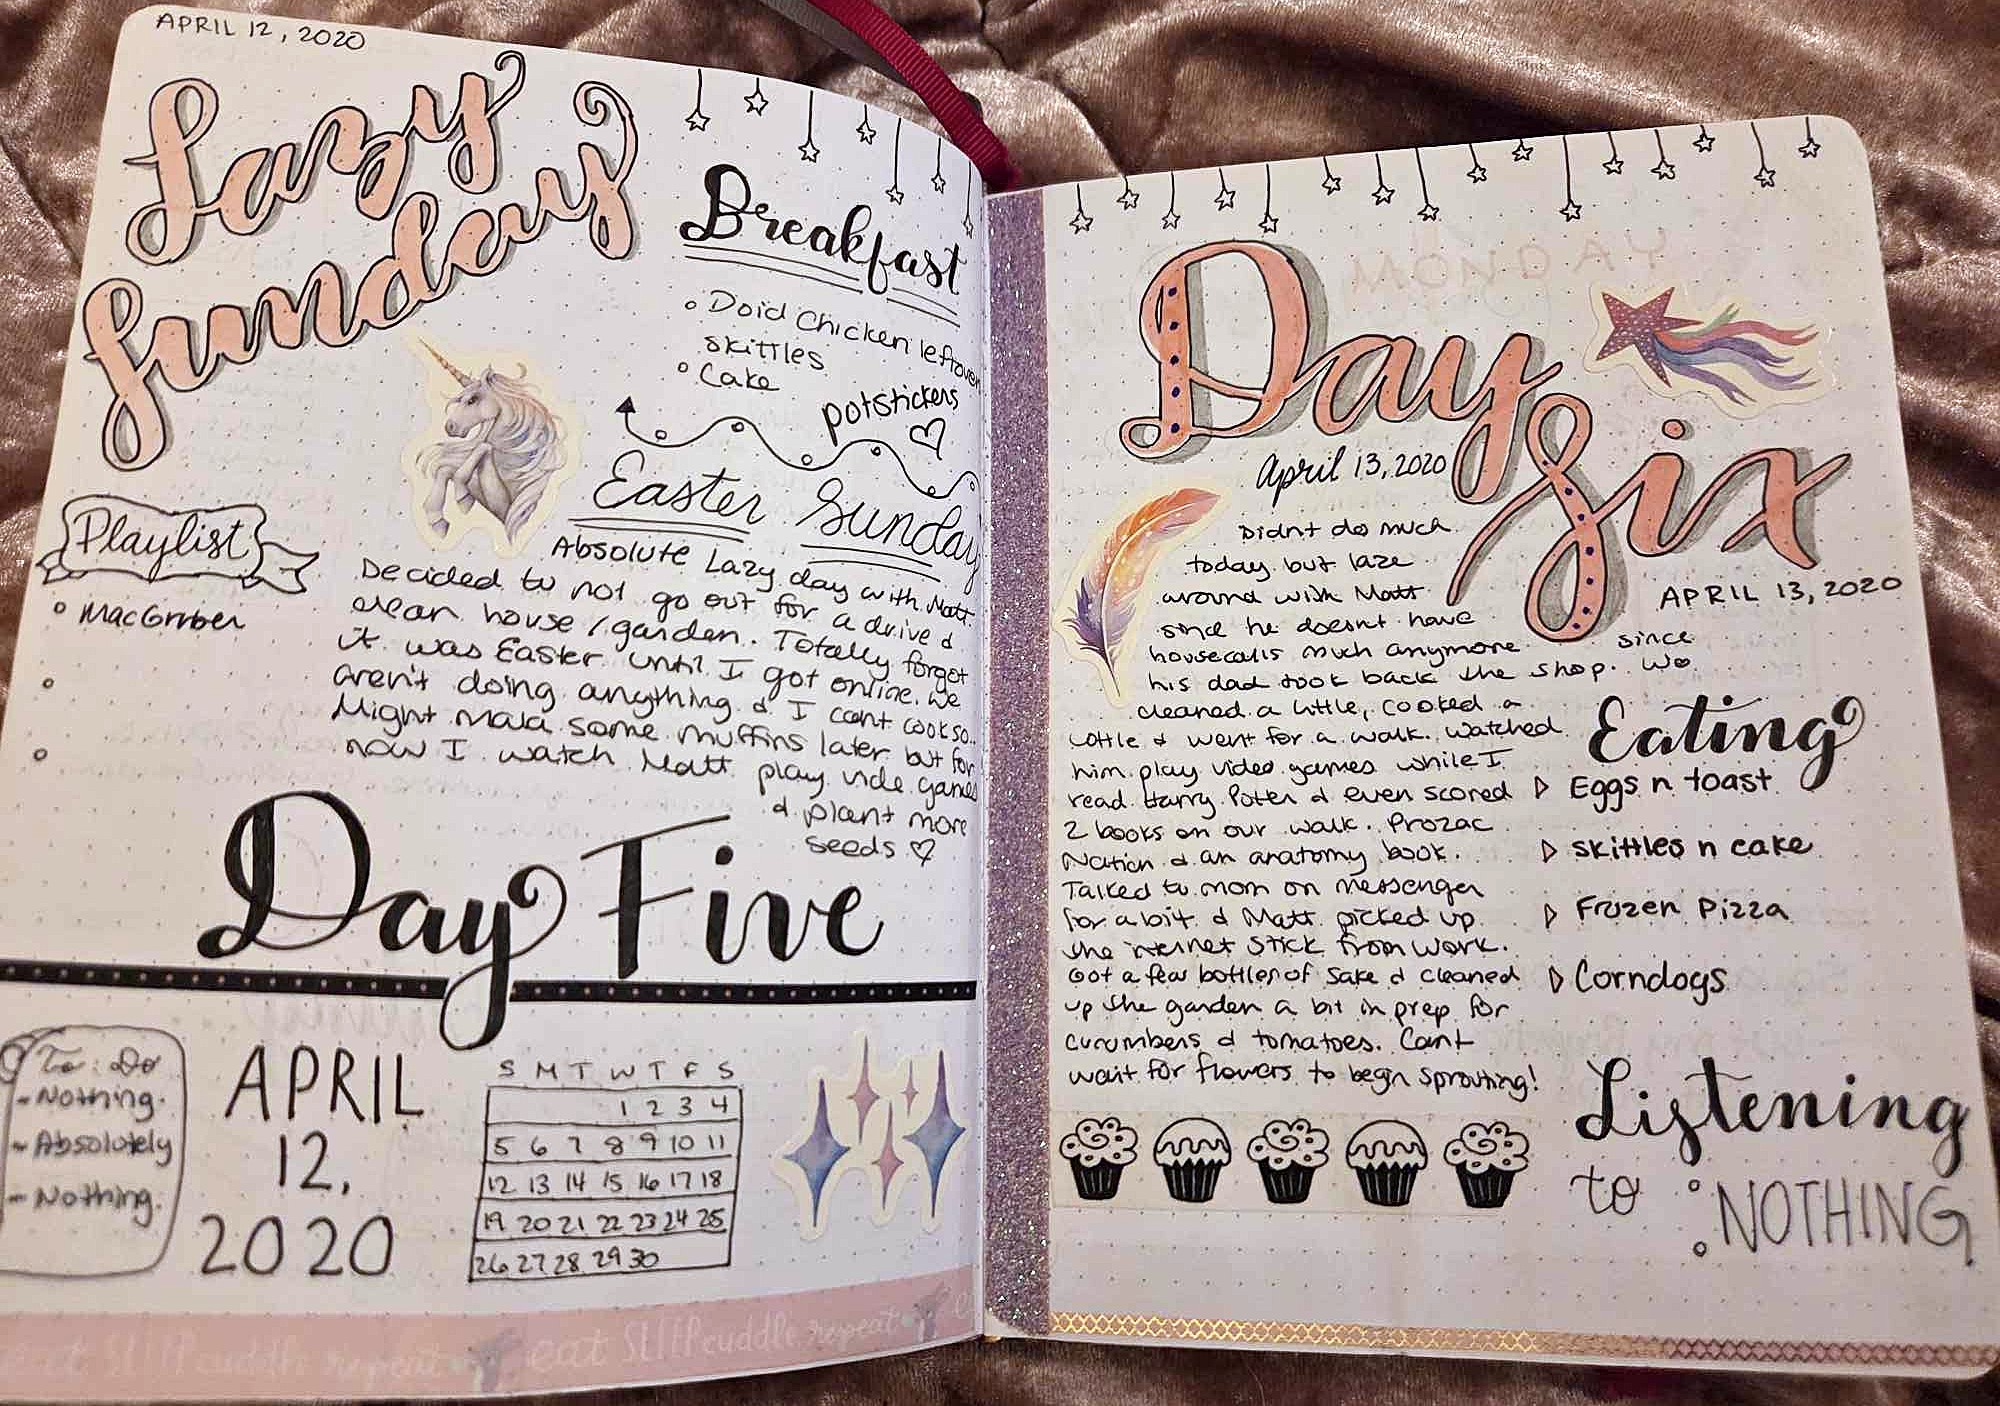 APRIL 12, 2020
Lazy
Sunday
Breakfast
Doid Chicken leftover
skittles
Cake
potstickers
Easter Sunday
Playlist
MacGruber
Absolute Lazy day with Matt.
Decided to not go out for a drive &
clean house / garden. Totally forgot
it was Easter until I got online. We
aren't doing anything & I cant cook so..
Might make some muffins later but for
now I watch Matt play vide games
& plant more
seeds ♡
Day Five
To: Do
- Nothing.
- Absolutely
- Nothing.
APRIL
12,
2020
S M T W T F S
1 2 3 4
5 6 7 8 9 10 11
12 13 14 15 16 17 18
19 20 21 22 23 24 25
26 27 28 29 30
eat SLEEP cuddle repeat eat SLEEP cuddle repeat
Day
Six
April 13, 2020
APRIL 13, 2020
Didnt do much
today but laze
around with Matt
since he doesnt have
housecalls much anymore since
his dad took back the shop. We
cleaned a little, cooked a
little & went for a walk. Watched
him play video games while I
read Harry Potter & even scored
2 books on our walk. Prozac
Nation & an anatomy book.
Talked to mom on messenger
for a bit & Matt picked up
the internet stick from work.
Got a few bottles of Sake & cleaned
up the garden a bit in prep for
cucumbers & tomatoes. Cant
wait for flowers to begin sprouting!
Eating
Eggs n toast
skittles n cake
Frozen Pizza
Corndogs
Listening
to
NOTHING